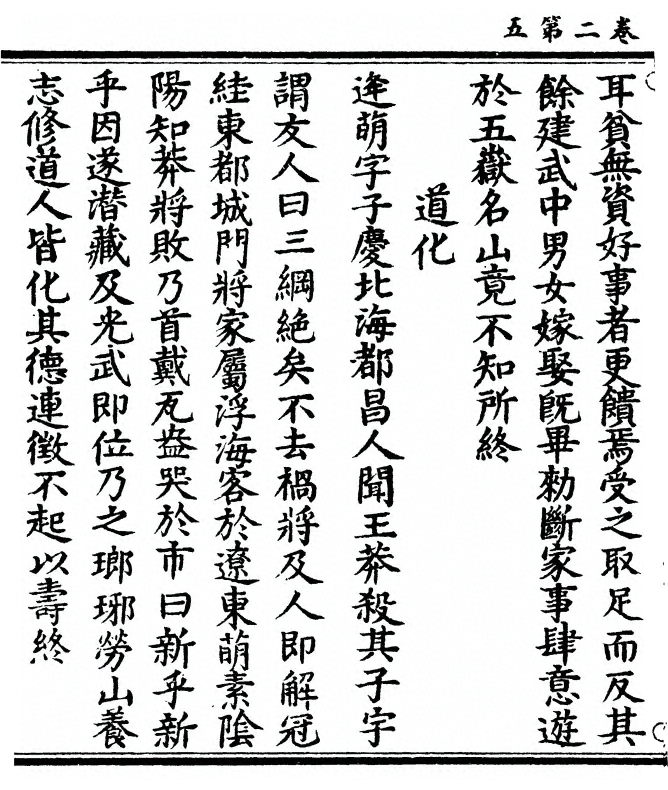 卷二第五
耳貧無資好事者更饋焉受之取足而反其
餘建武中男女嫁娶既畢勑斷家事肆意遊
於五嶽名山竟不知所終
道化
逄萌字子慶北海都昌人聞王莽殺其子字
謂友人曰三綱絶矣不去禍將及人即解冠
絓東都城門將家屬浮海客於遼東萌素陰
陽知莽將敗乃首戴瓦盎哭於市曰新乎新
乎因遂潜藏及光武即位乃之瑯琊勞山養
志修道人皆化其德連徵不起以壽終